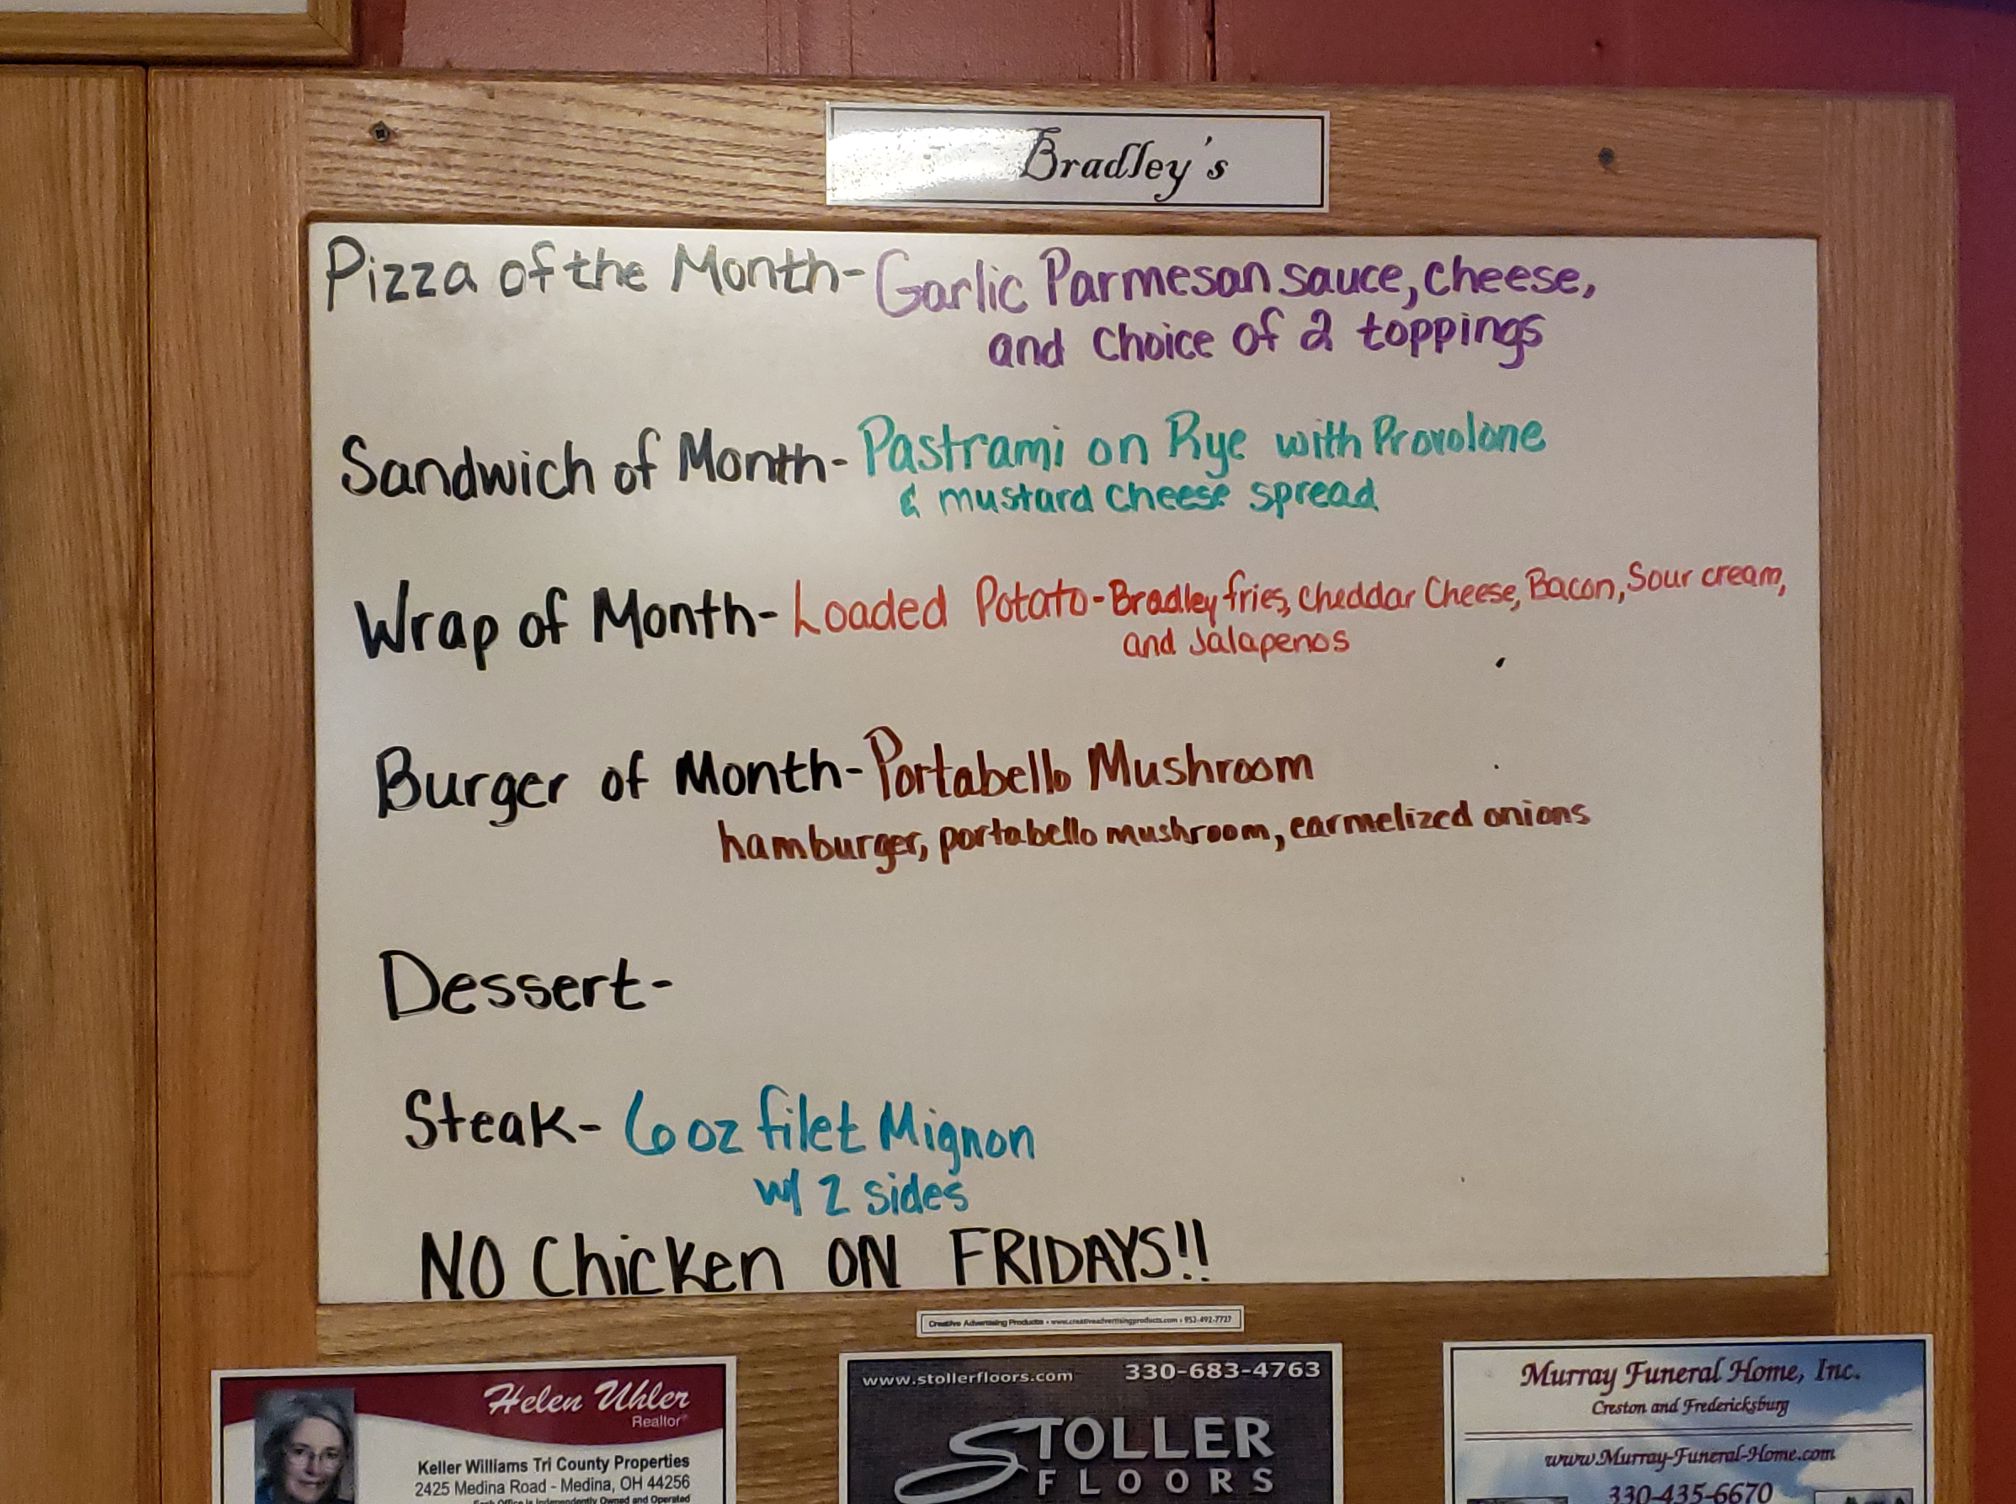 Bradley's
Pizza of the Month- Garlic Parmesan sauce, cheese,
and choice of 2 toppings
Sandwich of Month- Pastrami on Rye with Provolone
& mustard cheese spread
Wrap of Month- Loaded Potato- Bradley fries, cheddar Cheese, Bacon, Sour cream,
and Jalapenos
Burger of Month- Portabello Mushroom
hamburger, portabello mushroom, carmelized onions
Dessert-
Steak- 6 oz filet Mignon
w/ 2 sides
NO Chicken ON FRIDAYS!!
Creative Advertising Products • www.creativeadvertisingproducts.com • 952-492-7727
Helen Uhler
Realtor
Keller Williams Tri County Properties
2425 Medina Road - Medina, OH 44256
Each Office is Independently Owned and Operated
www.stollerfloors.com 330-683-4763
STOLLER
FLOORS
Murray Funeral Home, Inc.
Creston and Fredericksburg
www.Murray-Funeral-Home.com
330-435-6670